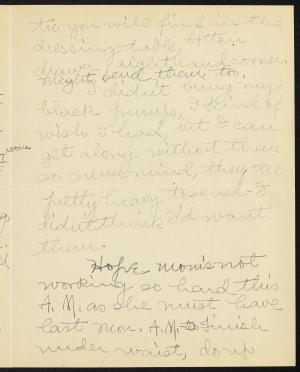 tie you will find in the
dressing table, bottom
drawer righthand corner.
might send them too.
I didn't bring my
black pumps, I kind of
wish I had, but I can
get along without them
so never mind, they are
pretty heavy to send. I
didn't think I'd want
them.
Hope mom's not
working so hard this
A.M. as she must have
last mon. A.M. to finish
under waist, do up